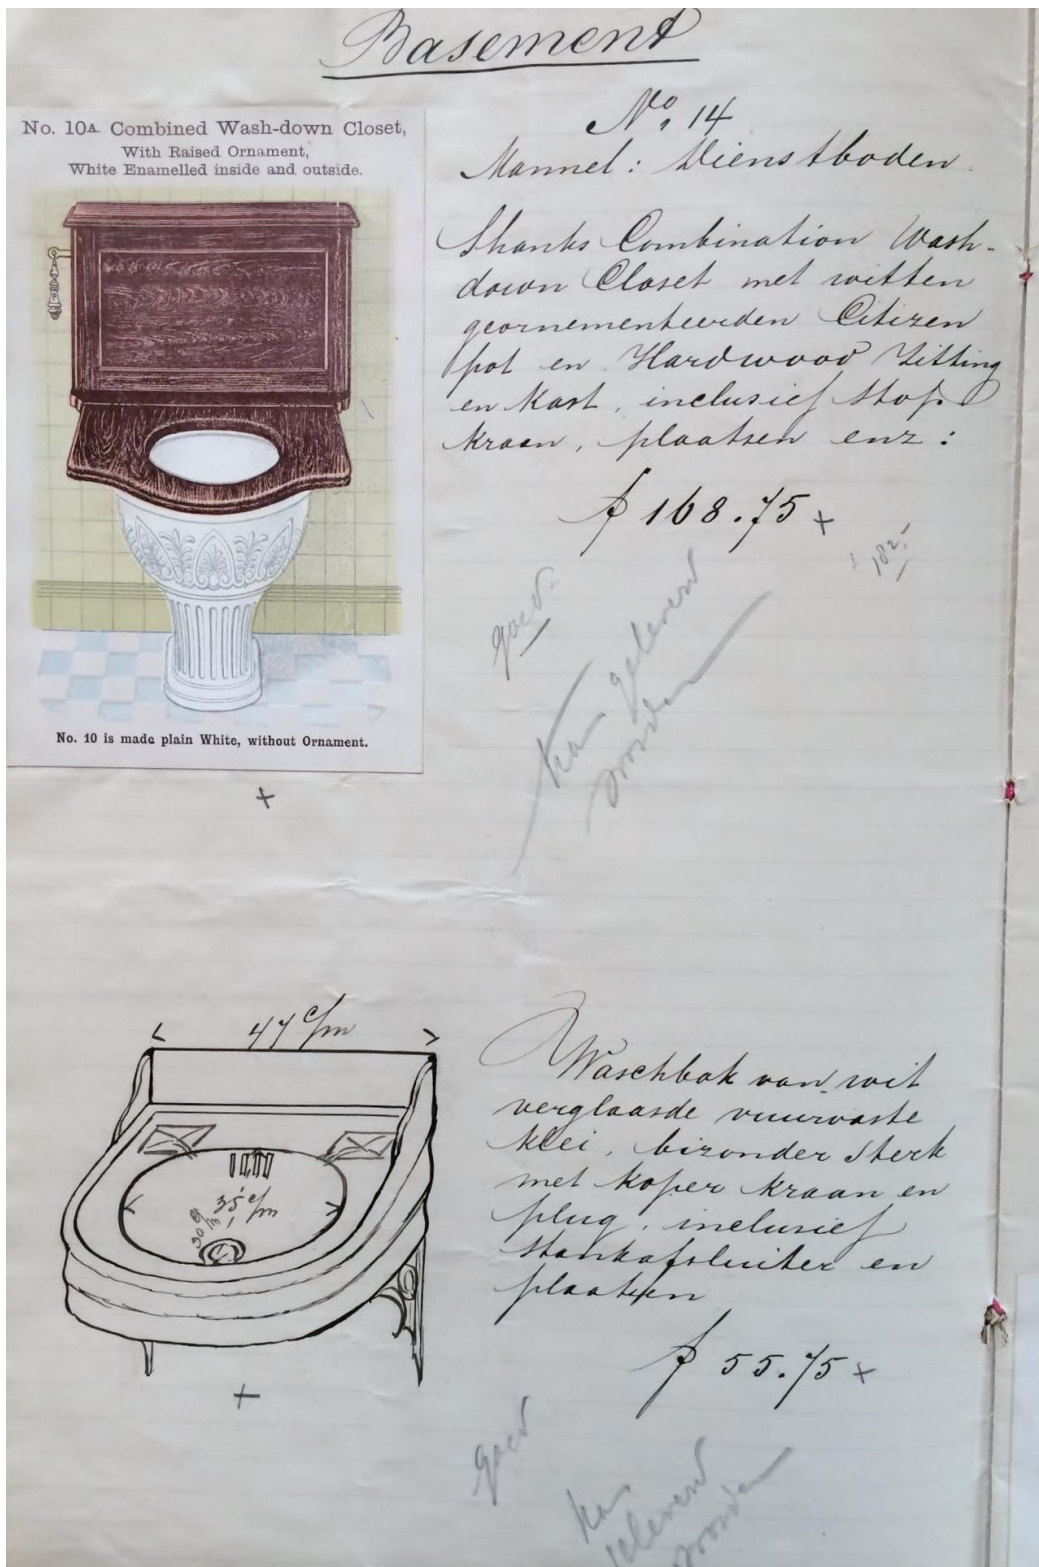 Basement
No. 10A. Combined Wash-down Closet,
With Raised Ornament,
White Enamelled inside and outside.
No. 10 is made plain White, without Ornament.
No, 14
Mannel: Dienstboden
Shanks Combination Wash-
down Closet met witten
geornementeerden Citizen
pot en Hardwood Zitting
en Kast, inclusief Stop
Kraan, plaatsen enz:
ƒ 168.75 +
182,-
goed
kan geleverd
worden
+
47 c/m
35 c/m
30 c/m
+
Waschbak van wit
verglaasde vuurvaste
klei, bizonder sterk
met koper kraan en
plug, inclusief
stankafsluiter en
plaatsen
ƒ 55.75 +
goed
kan
geleverd
worden